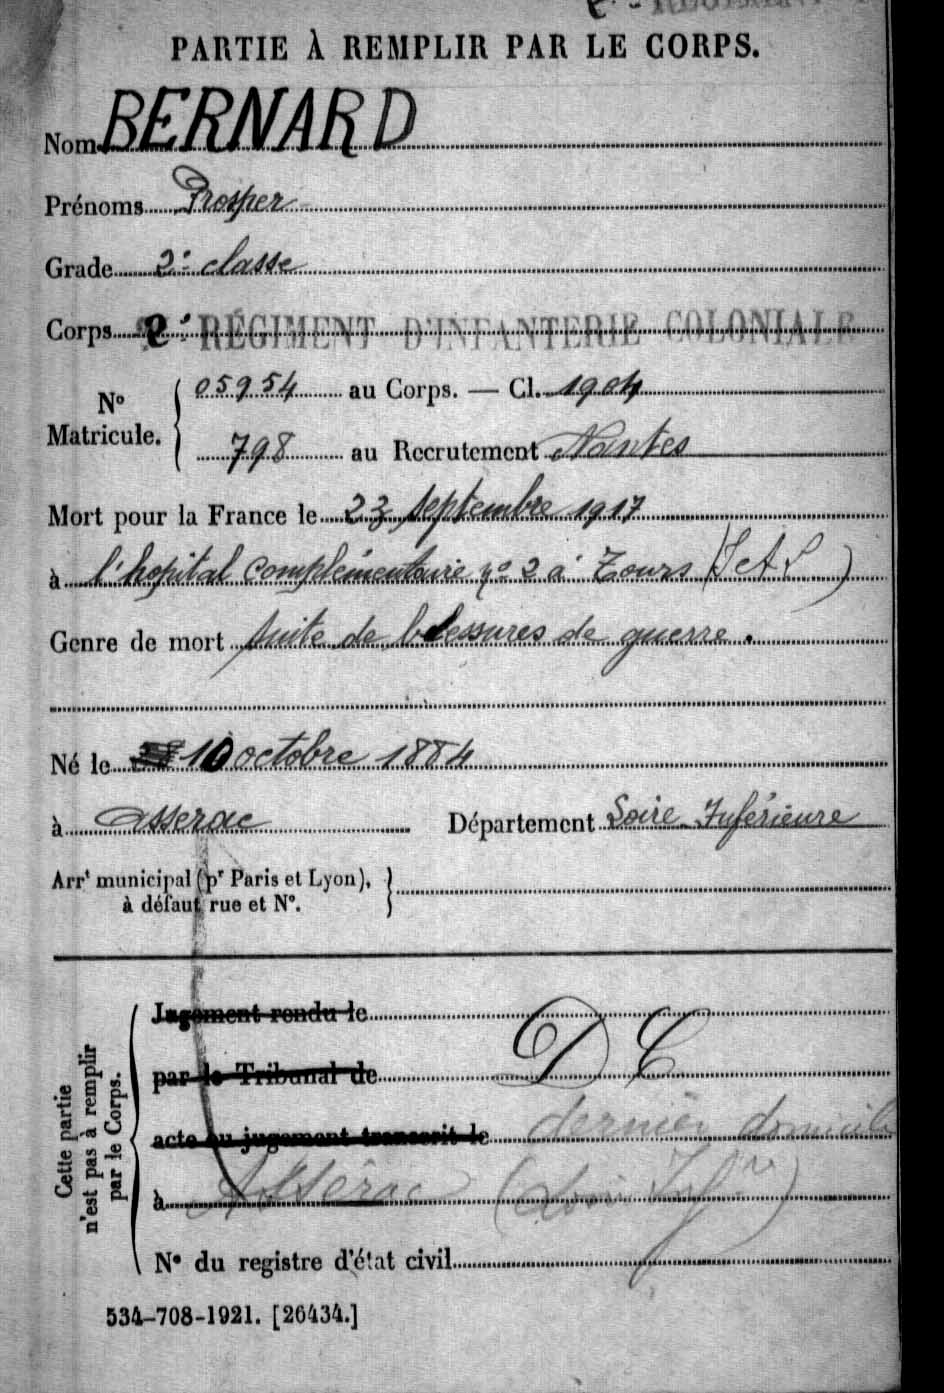 PARTIE À REMPLIR PAR LE CORPS.
Nom BERNARD
Prénoms Prosper
Grade 2e classe
Corps 2e RÉGIMENT D'INFANTERIE COLONIALE
No Matricule. 05954 au Corps. — Cl. 1904
798 au Recrutement Nantes
Mort pour la France le 23 septembre 1917
à l'hopital complémentaire no 2 à Tours (I et L)
Genre de mort suite de blessures de guerre.
Né le 10 octobre 1884
à Asserac Département Loire-Inférieure
Arrt municipal (pr Paris et Lyon),
à défaut rue et No.
Cette partie
n'est pas à remplir
par le Corps.
Jugement rendu le
par le Tribunal de D C
acte ou jugement transcrit le dernier domicile
à Assérac (Loire Infre)
No du registre d'état civil
534-708-1921. [26434.]